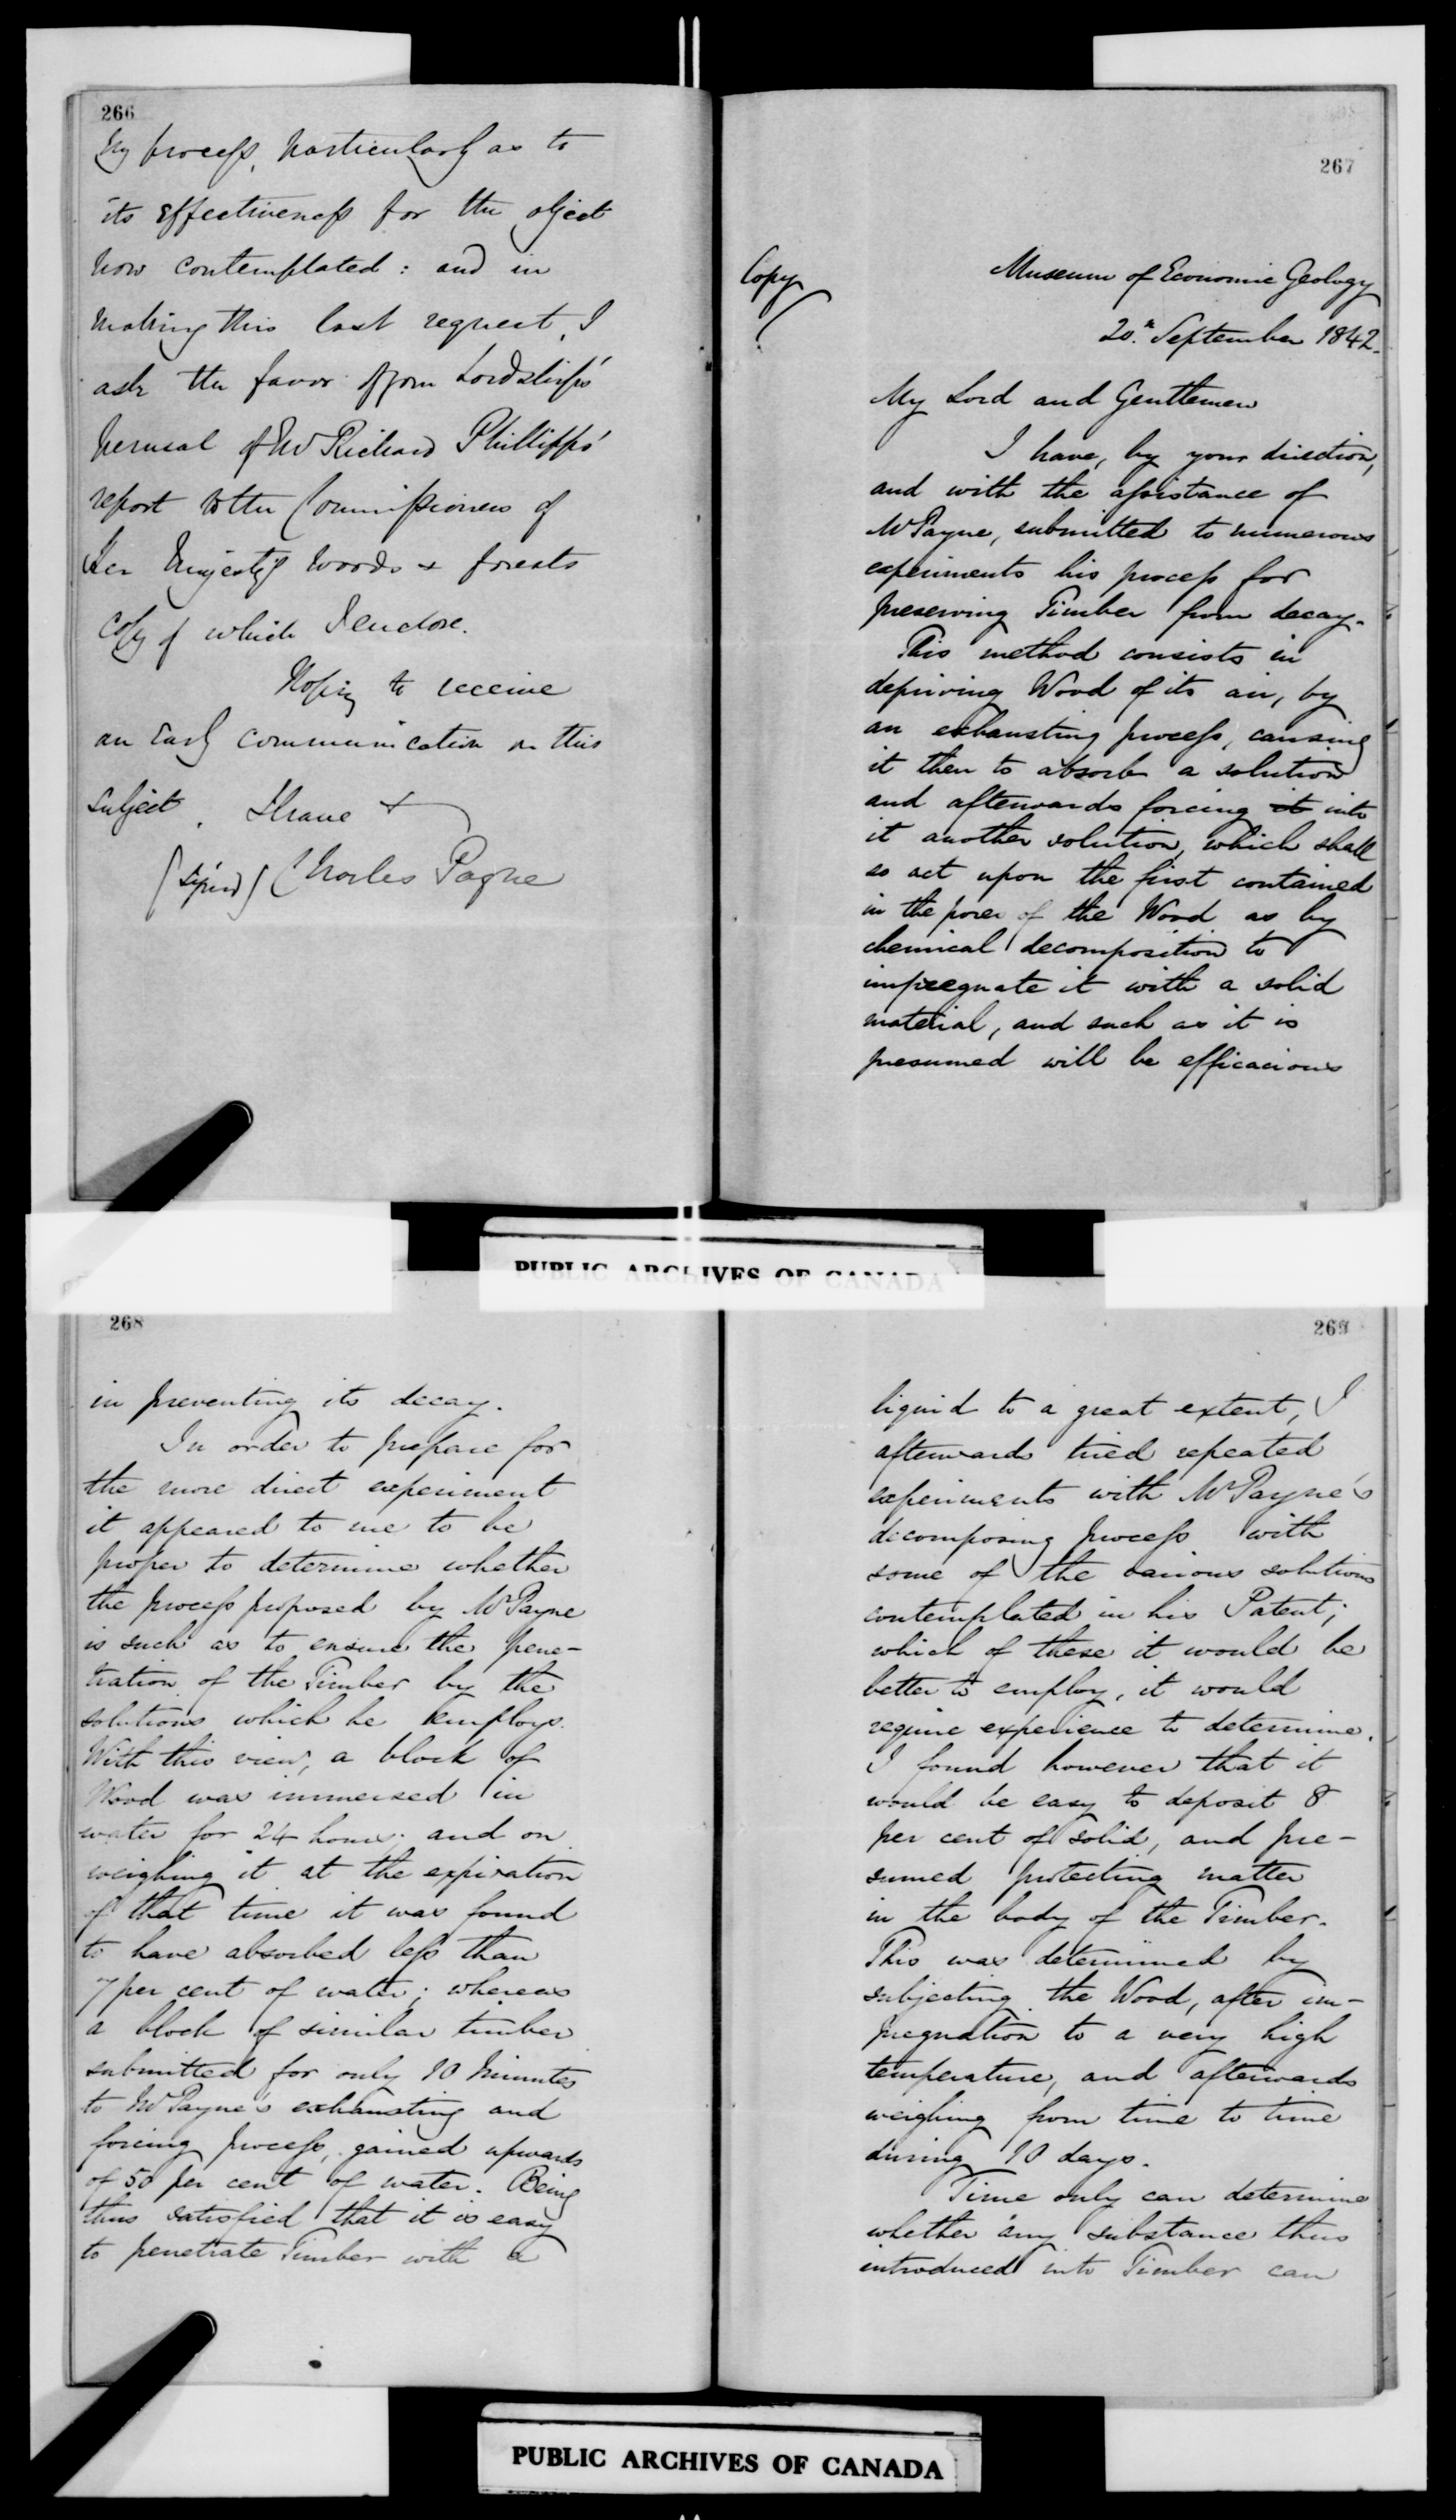 266
My process, particularly as to
its effectiveness for the object
now contemplated: and in
making this last request, I
ask the favor of your Lordships'
perusal of Mr Richard Phillipps'
report to the Commissioners of
Her Majesty's Woods & forests
Copy of which I enclose.
Hoping to receive
an Early communication on this
subject. I have &
(Signed) Charles Payne
267
Copy
Museum of Economic Geology
20th September 1842.
My Lord and Gentlemen
I have, by your direction,
and with the assistance of
Mr Payne, submitted to numerous
experiments his process for
preserving Timber from decay.
This method consists in
depriving Wood of its air, by
an exhausting process, causing
it then to absorb a solution
and afterwards forcing it into
it another solution, which shall
so act upon the first contained
in the pores of the Wood as by
chemical decomposition to
impregnate it with a solid
material, and such as it is
presumed will be efficacious
PUBLIC ARCHIVES OF CANADA
268
in preventing its decay.
In order to prepare for
the more direct experiment
it appeared to me to be
proper to determine whether
the process proposed by Mr Payne
is such as to ensure the pene-
tration of the Timber by the
solutions which he employs.
With this view, a block of
Wood was immersed in
water for 24 hours; and on
weighing it at the expiration
of that time it was found
to have absorbed less than
7 per cent of water; whereas
a block of similar timber
submitted for only 10 Minutes
to Mr Payne's exhausting and
forcing process, gained upwards
of 50 per cent of water. Being
thus satisfied that it is easy
to penetrate Timber with a
269
liquid to a great extent, I
afterwards tried repeated
experiments with Mr Payne's
decomposing process with
some of the various solutions
contemplated in his Patent;
which of these it would be
better to employ, it would
require experience to determine.
I found however that it
would be easy to deposit 8
per cent of solid, and pre-
sumed protecting matter
in the body of the Timber.
This was determined by
subjecting the Wood, after im-
pregnation to a very high
temperature, and afterwards
weighing from time to time
during 10 days.
Time only can determine
whether any substance thus
introduced into Timber can
PUBLIC ARCHIVES OF CANADA